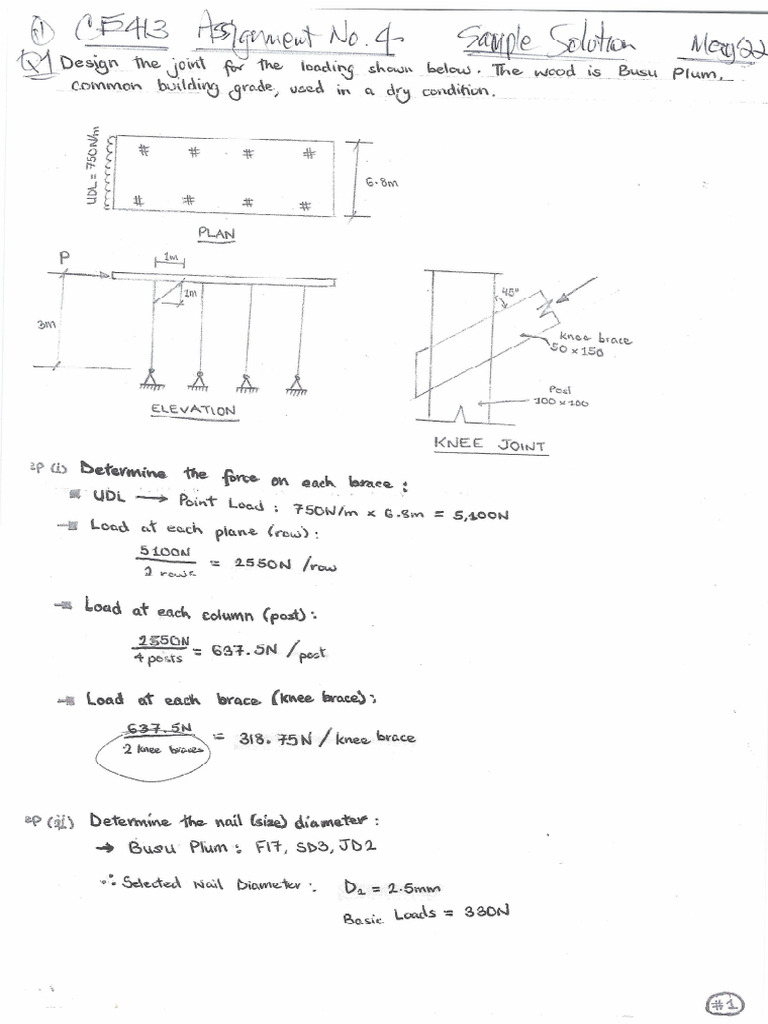 #1 CE413 Assignment No. 4 Sample Solution May 22
Q1 Design the joint for the loading shown below. The wood is Busu Plum,
common building grade, used in a dry condition.
UDL = 750N/m
6.8m
PLAN
P
1m
1m
3m
ELEVATION
45°
knee brace
50 x 150
Post
100 x 100
KNEE JOINT
2P (i) Determine the force on each brace:
UDL → Point Load: 750N/m x 6.8m = 5,100N
Load at each plane (row):
5100N
2 rows
= 2550N /row
Load at each column (post):
2550N
4 posts
= 637.5N /post
Load at each brace (knee brace):
637.5N
2 knee braces
= 318.75N / knee brace
2P (ii) Determine the nail (size) diameter:
→ Busu Plum: F17, SD3, JD2
∴ Selected Nail Diameter: D₂ = 2.5mm
Basic Loads = 330N
#1